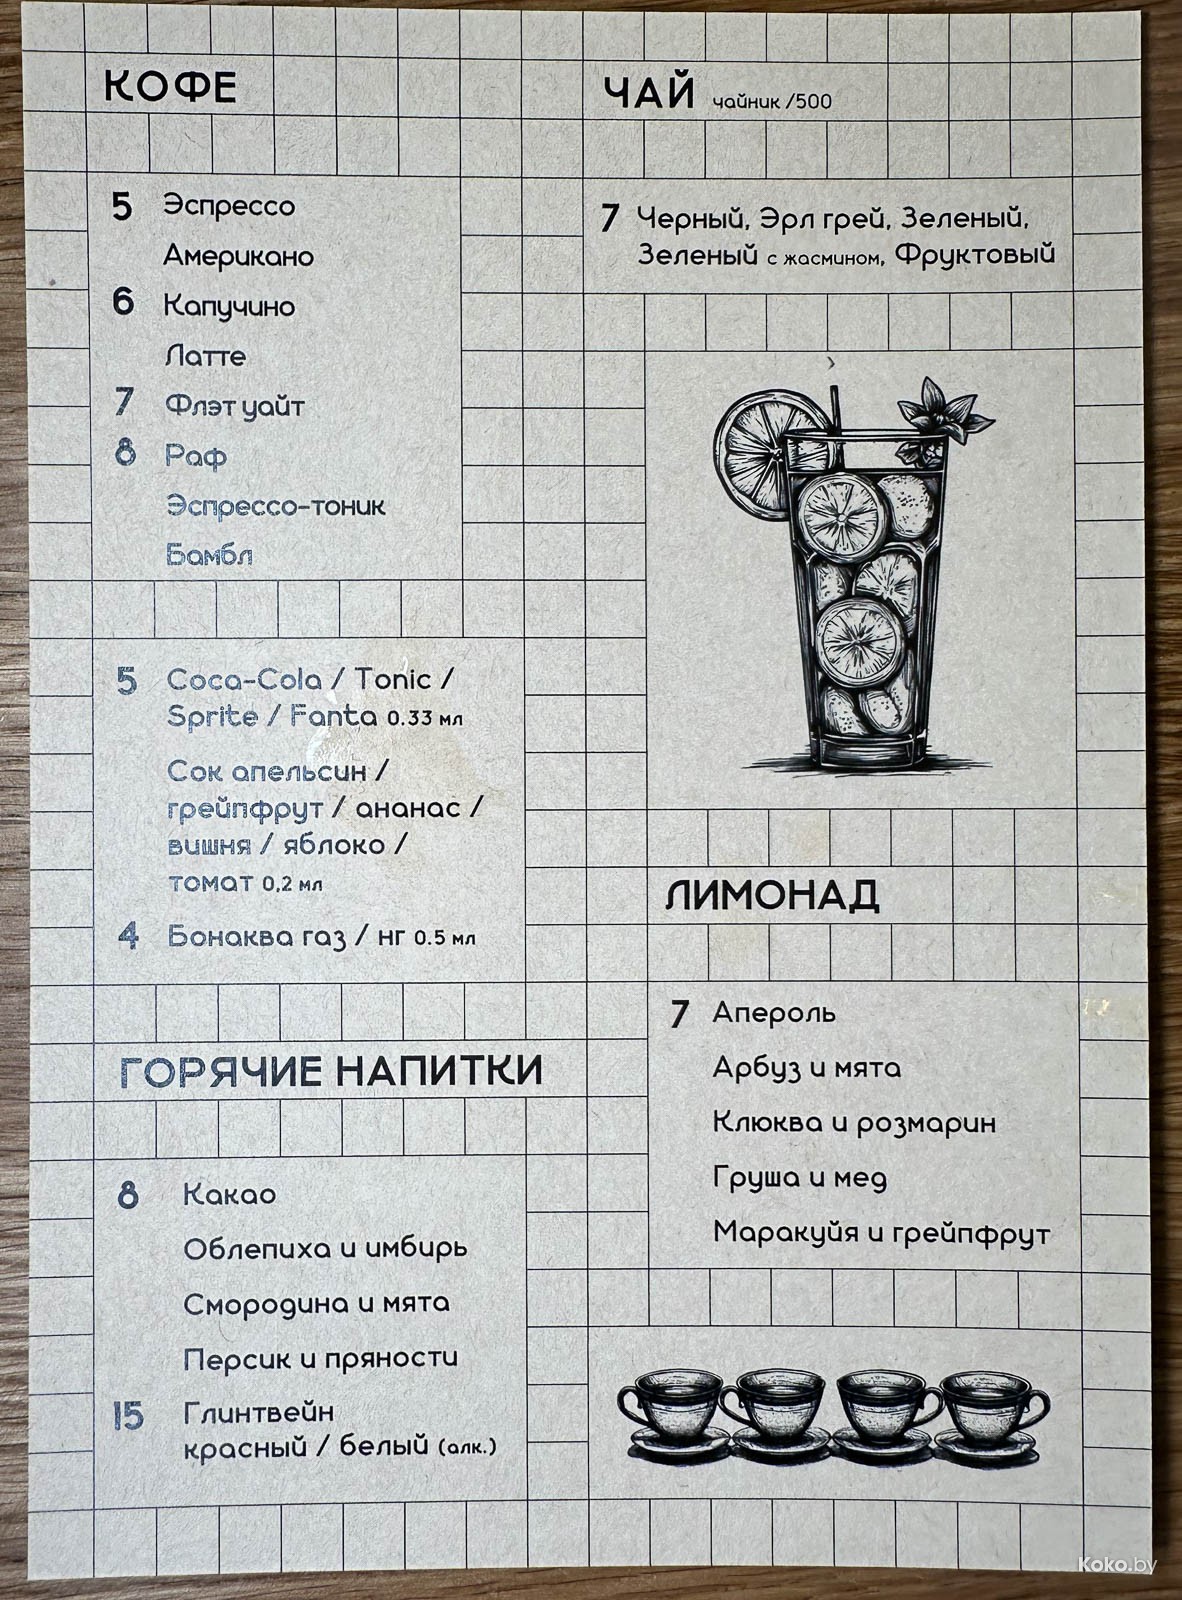 КОФЕ
5 Эспрессо
Американо
6 Капучино
Латте
7 Флэт уайт
8 Раф
Эспрессо-тоник
Бамбл
5 Coca-Cola / Tonic /
Sprite / Fanta 0.33 мл
Сок апельсин /
грейпфрут / ананас /
вишня / яблоко /
томат 0,2 мл
4 Бонаква газ / нг 0.5 мл
ГОРЯЧИЕ НАПИТКИ
8 Какао
Облепиха и имбирь
Смородина и мята
Персик и пряности
15 Глинтвейн
красный / белый (алк.)
ЧАЙ чайник /500
7 Черный, Эрл грей, Зеленый,
Зеленый с жасмином, Фруктовый
ЛИМОНАД
7 Апероль
Арбуз и мята
Клюква и розмарин
Груша и мед
Маракуйя и грейпфрут
Koko.by